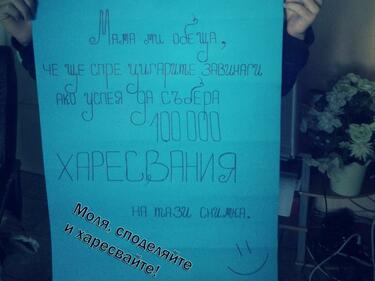 Мама ми обеща,
че ще спре цигарите завинаги
ако успея да събера
100 000
ХАРЕСВАНИЯ
на тази снимка.
Моля, споделяйте
и харесвайте!